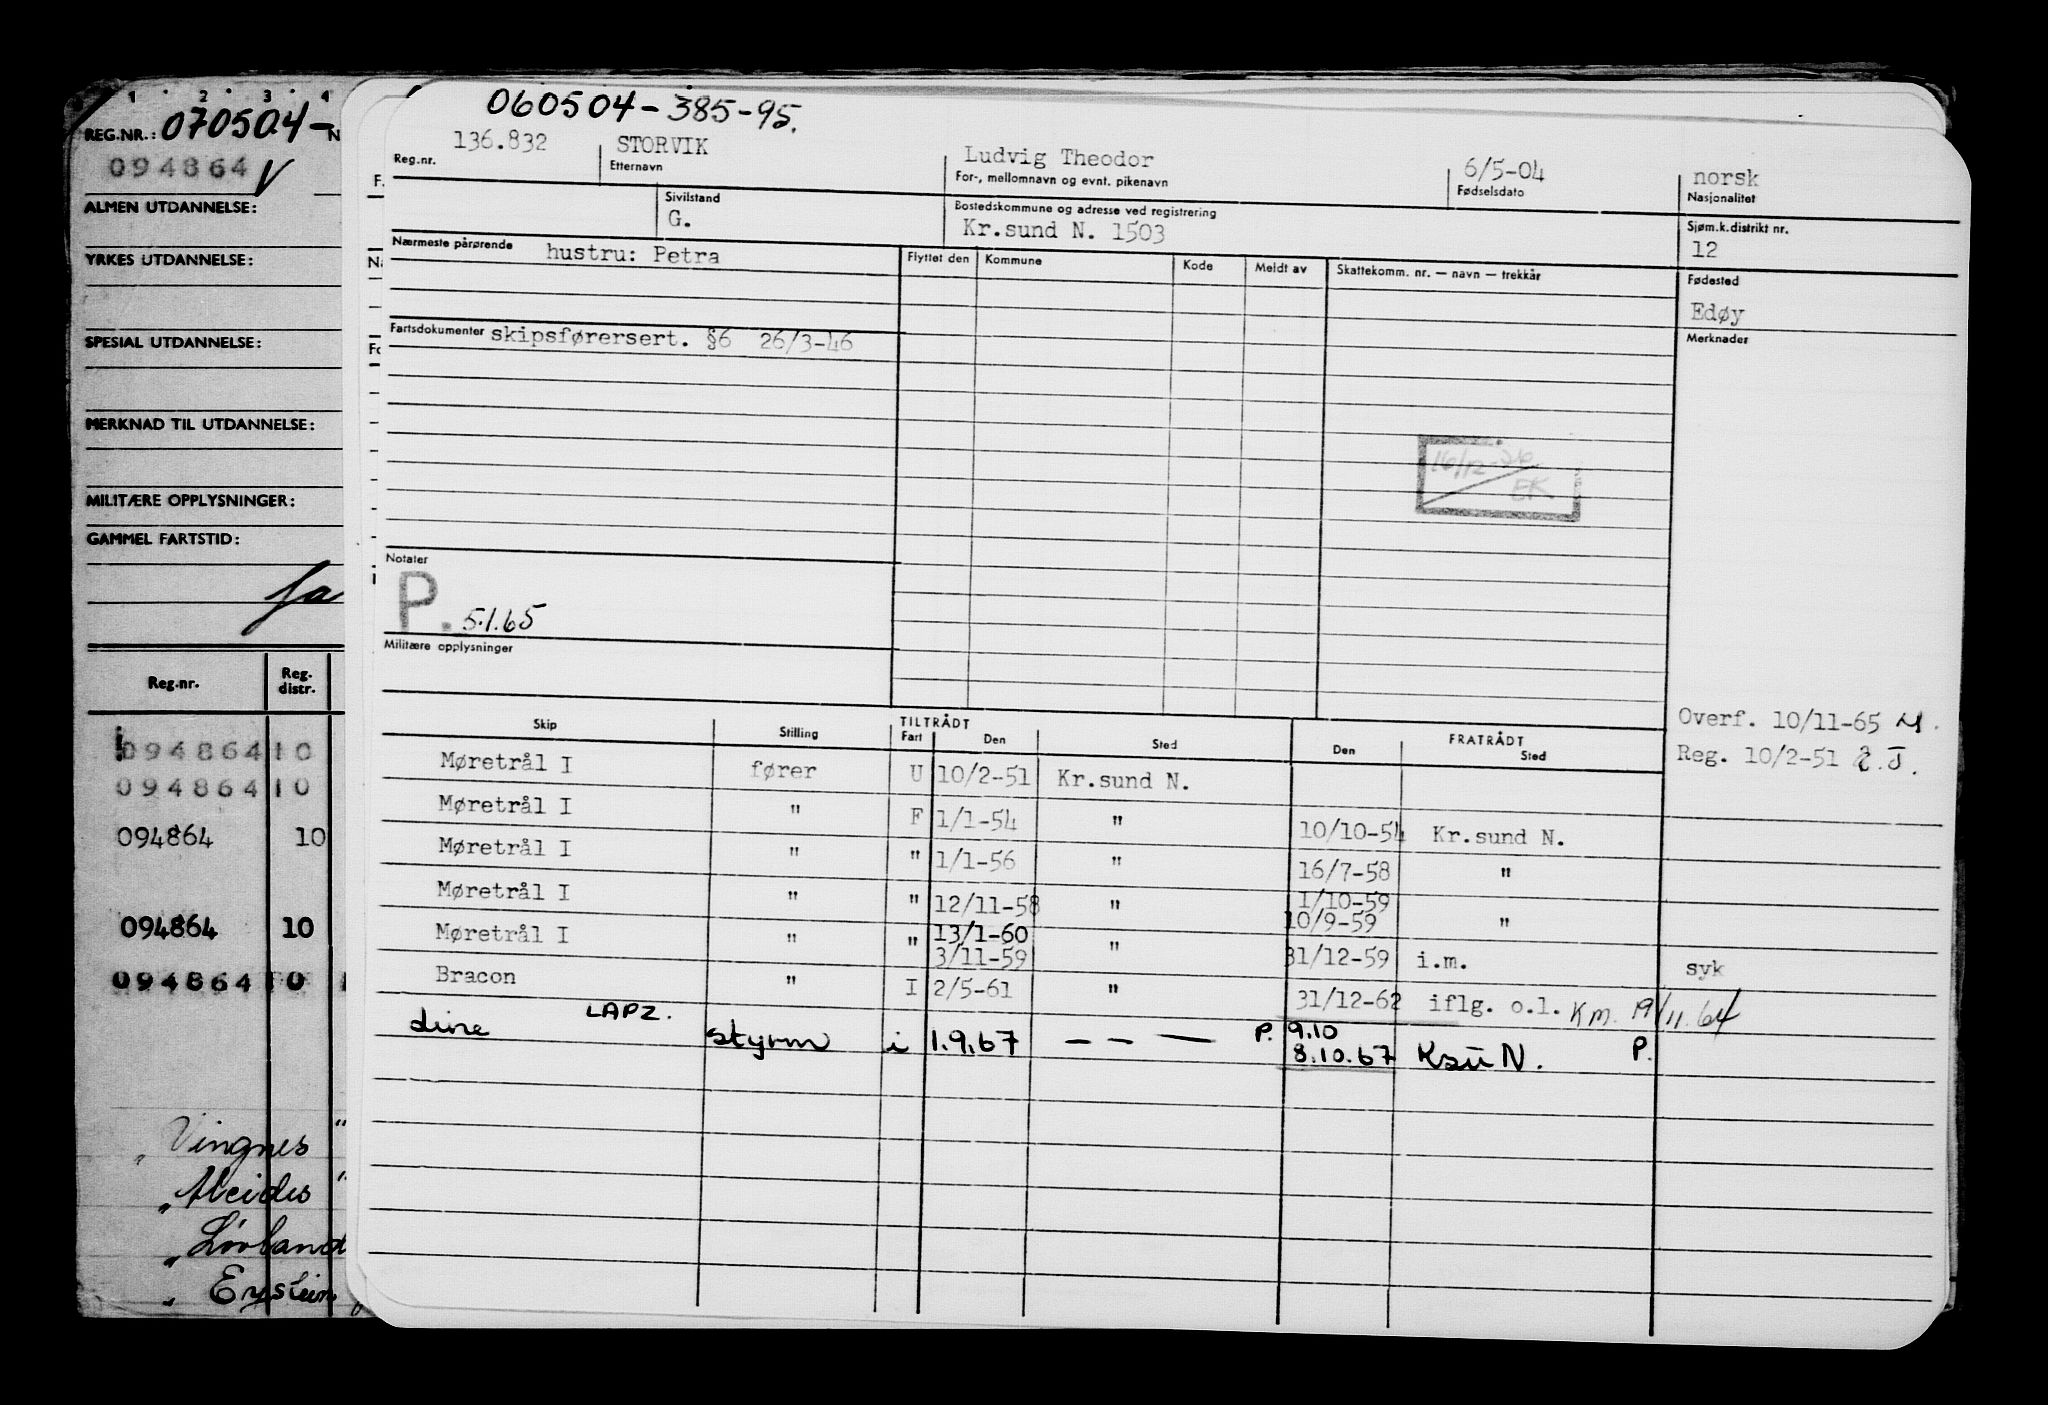 1 2 3 4
REG.NR.: 070504- N
094864 V
ALMEN UTDANNELSE:
YRKES UTDANNELSE:
SPESIAL UTDANNELSE:
MERKNAD TIL UTDANNELSE:
MILITÆRE OPPLYSNINGER:
GAMMEL FARTSTID:
Ja
Reg.nr. Reg. distr.
094864 10
094864 10
094864 10
094864 10
094864 10
"Vingnes"
"Aleidis"
"Lovland
"Eystein"
060504-385-95.
Reg.nr. 136.832 STORVIK Ludvig Theodor 6/5-04 norsk
Etternavn For-, mellomnavn og evnt. pikenavn Fødselsdato Nasjonalitet
Sivilstand Bostedskommune og adresse ved registrering Sjøm.k.distrikt nr.
G. Kr.sund N. 1503 12
Nærmeste pårørende hustru: Petra Flyttet den Kommune Kode Meldt av Skattekomm. nr. — navn — trekkår Fødested
Edøy
Fartsdokumenter skipsførersert. §6 26/3-46 Merknader
16/12
EK
Notater
P. 5.1.65
Militære opplysninger
Overf. 10/11-65
Reg. 10/2-51
Skip Stilling TILTRÅDT FRATRÅDT
Fart Den Sted Den Sted
Møretrål I fører U 10/2-51 Kr.sund N.
Møretrål I " F 1/1-54 " 10/10-54 Kr.sund N.
Møretrål I " " 1/1-56 " 16/7-58 "
Møretrål I " " 12/11-58 " 1/10-59
10/9-59 "
Møretrål I " " 13/1-60
3/11-59 " 31/12-59 i.m. syk
Bracon " I 2/5-61 " 31/12-62 iflg. o.l. Km. 19/11.64
LAPZ. styrm i 1.9.67 — — — P. 9.10
8.10.67 Ksu N. P.